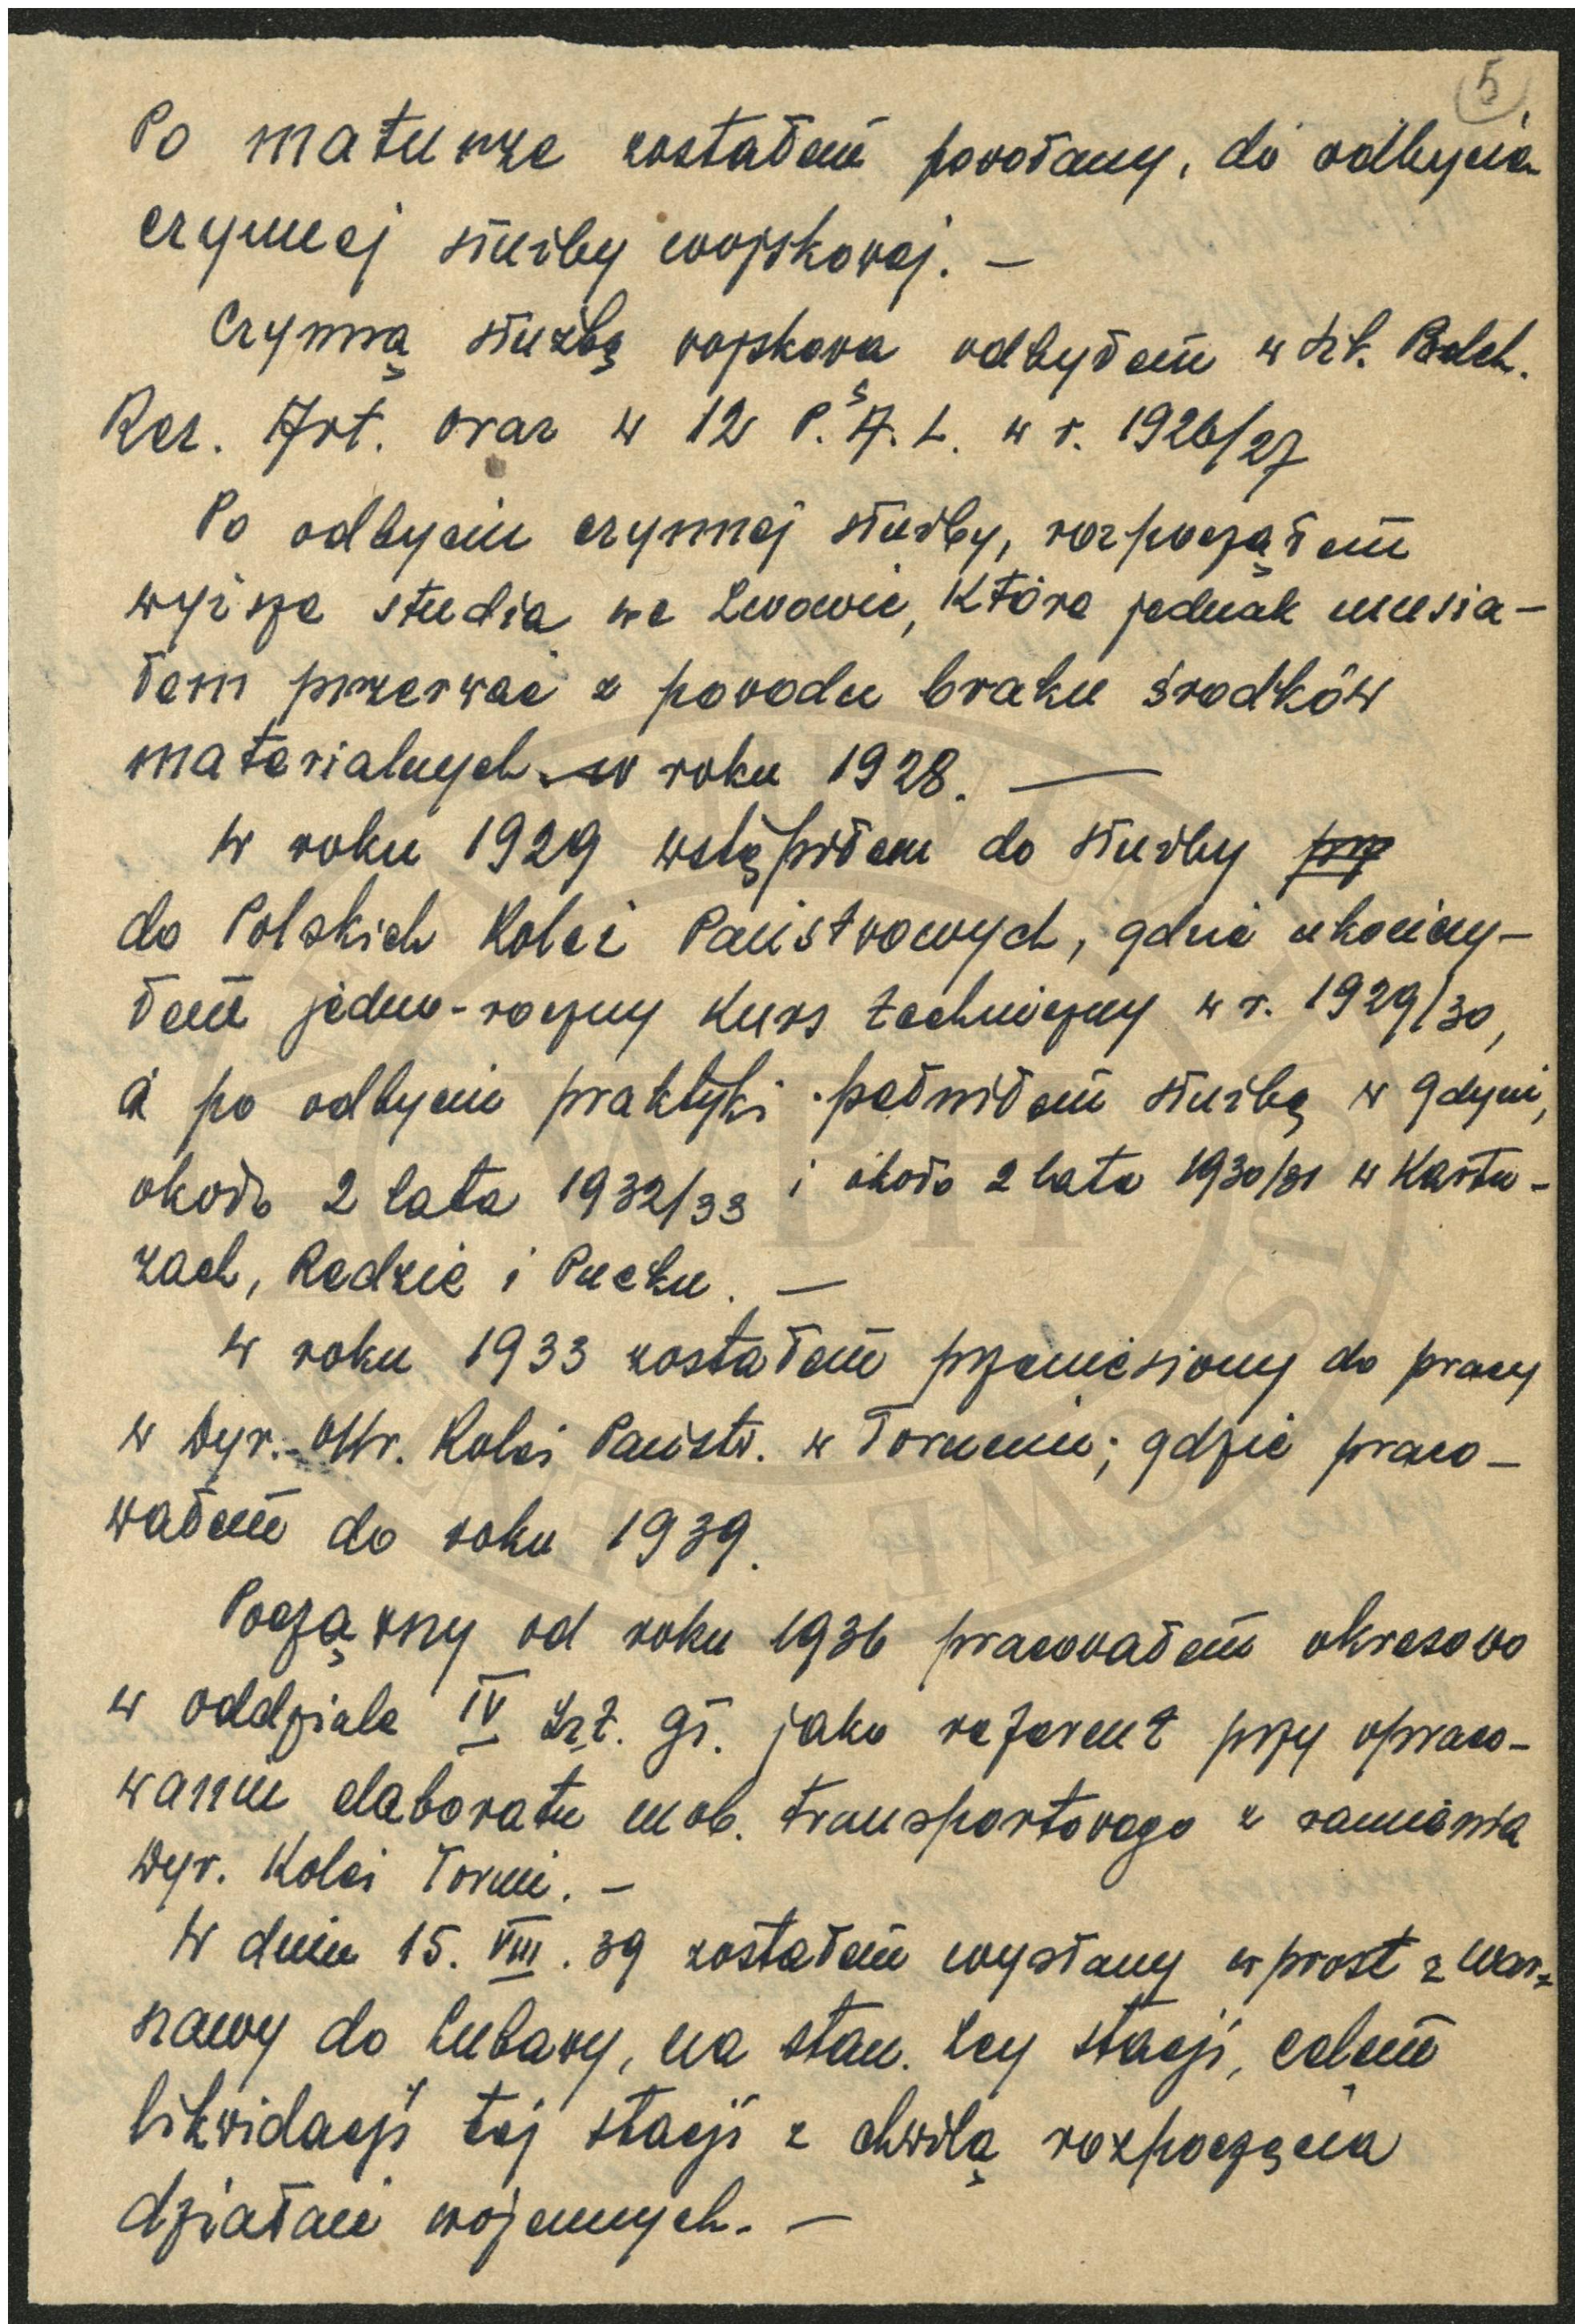 5
Po maturze zostałem powołany, do odbycia
czynnej służby wojskowej. —
Czynną służbę wojskową odbyłem w Szk. Podch.
Rez. Art. oraz w 12 P. A. L. w r. 1926/27
Po odbyciu czynnej służby, rozpocząłem
wyższe studia we Lwowie, które jednak musia-
łem przerwać z powodu braku środków
materialnych w roku 1928. —
W roku 1929 wstąpiłem do służby
do Polskich Kolei Państwowych, gdzie ukończy-
łem jedno-roczny kurs techniczny w r. 1929/30,
a po odbyciu praktyki pełniłem służbę w Gdyni,
około 2 lata 1932/33 i około 2 lata 1930/31 w Kartu-
zach, Redzie i Pucku. —
W roku 1933 zostałem przeniesiony do pracy
w Dyr. Okr. Kolei Państw. w Toruniu; gdzie praco-
wałem do roku 1939.
Począwszy od roku 1936 pracowałem okresowo
w oddziale IV Szt. Gł. jako referent przy opraco-
waniu elaboratu mob. transportowego z ramienia
Dyr. Kolei Toruń. —
W dniu 15. VIII. 39 zostałem wysłany wprost z War-
szawy do Lubawy, na stan. Zcy stacji, celem
likwidacji tej stacji z chwilą rozpoczęcia
działań wojennych. —